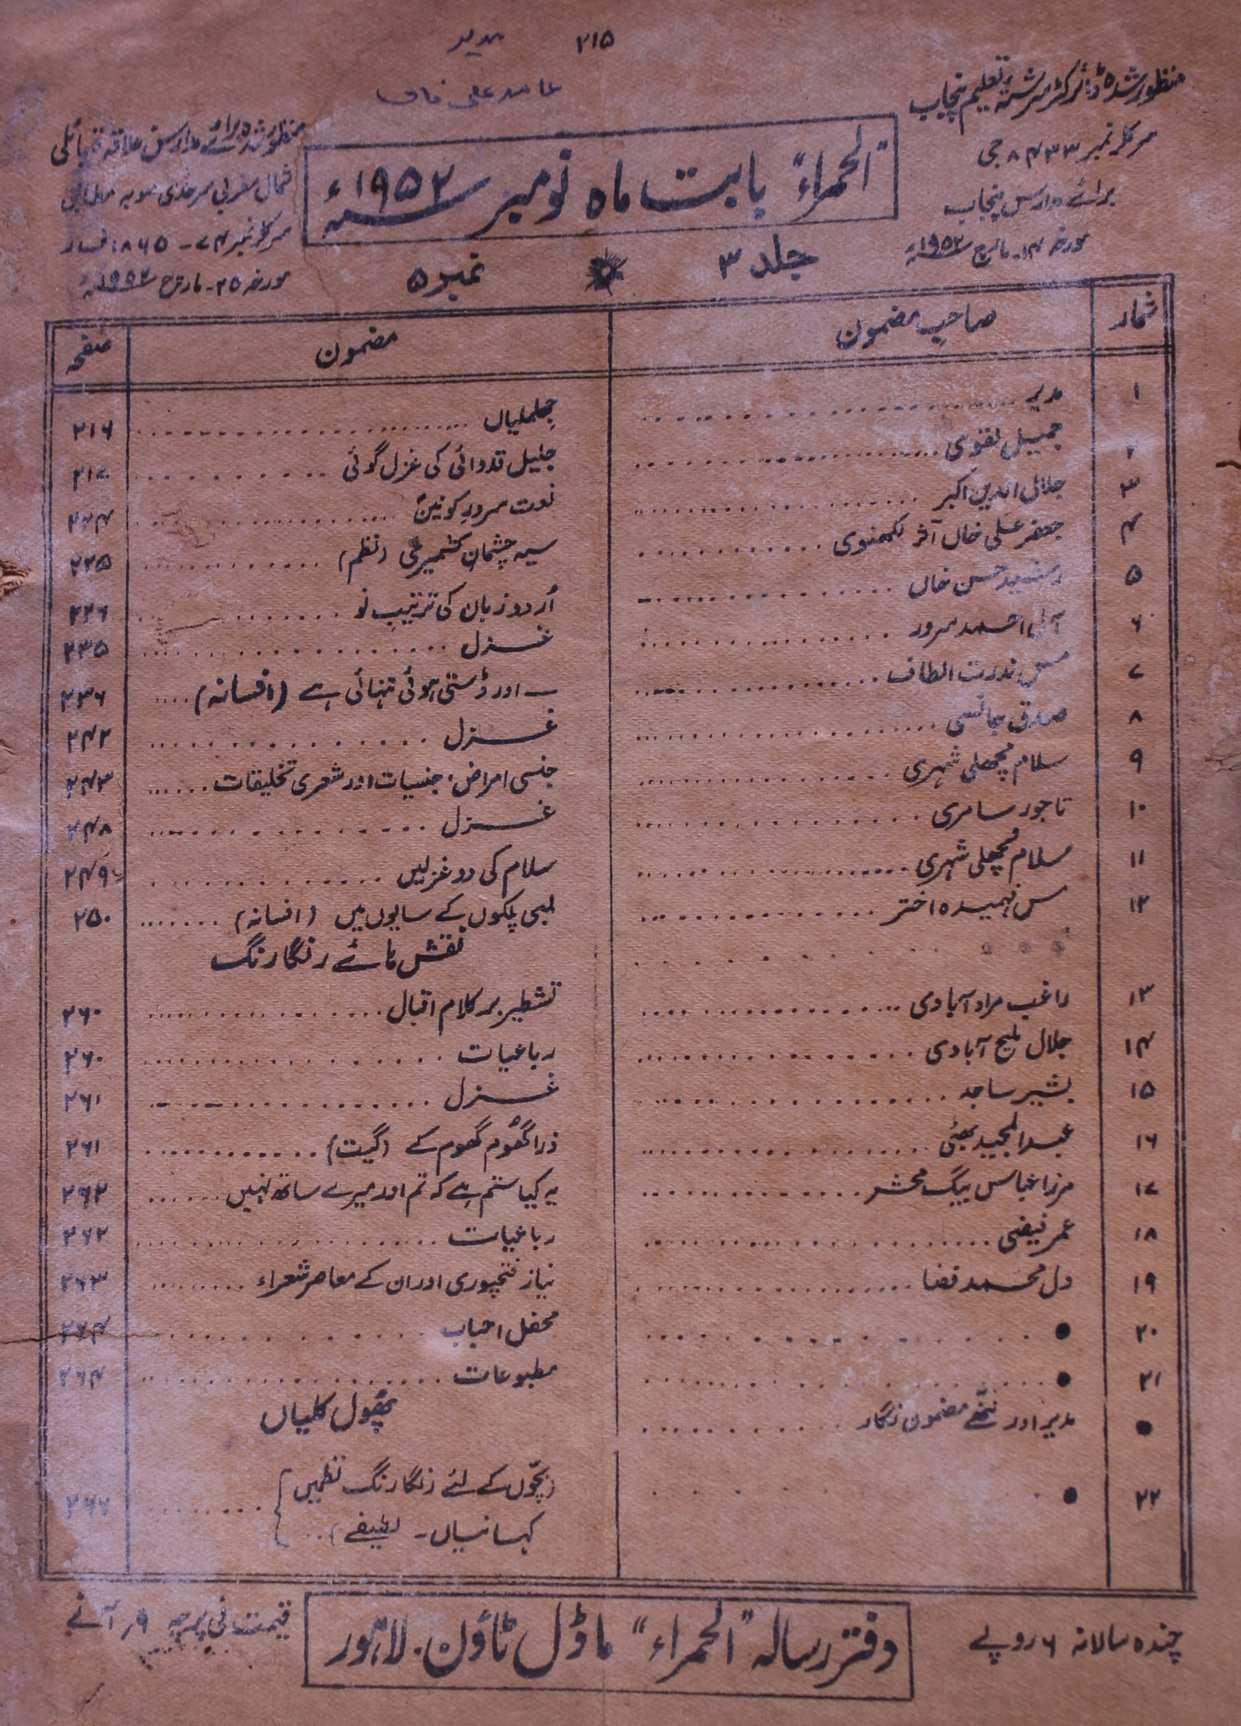 ۲۱۵
مدیر
حامد علی خاں
منظور شدہ ڈائرکٹر سررشتۂ تعلیم پنجاب
سرکلر نمبر ۸۴۳۳ جی
برائے مدارس پنجاب
مورخہ ۱۴۔ مارچ ۱۹۵۲ء
"الحمراء" بابت ماہ نومبر ۱۹۵۲ء
منظور شدہ برائے مدارس علاقہ قبائلی
شمال مغربی سرحدی صوبہ
سرکلر نمبر ۷۴ - ۱۸۶۵
مورخہ ۲۵۔ مارچ ۱۹۵۲ء
جلد ۳ نمبر ۵
شمار صاحبِ مضمون مضمون صفحہ
۱ مدیر جھلملیاں ۲۱۶
۲ جمیل نقوی جلیل قدوائی کی غزل گوئی ۲۱۷
۳ جلال الدین اکبر نعت سرورِ کونینؐ ۲۲۴
۴ جعفر علی خاں اثر لکھنوی سیہ چشمانِ کشمیری (نظم) ۲۲۵
۵ رشید حسن خاں اُردو زبان کی ترتیبِ نو ۲۲۶
۶ آل احمد سرور غزل ۲۳۵
۷ مس ندرت الطاف ـــ اور ڈستی ہوئی تنہائی ہے (افسانہ) ۲۳۶
۸ صدق جائسی غزل ۲۴۲
۹ سلام مچھلی شہری جنسی امراض، جنسیات اور شعری تخلیقات ۲۴۳
۱۰ تاجور سامری غزل ۲۴۸
۱۱ سلام مچھلی شہری سلام کی دو غزلیں ۲۴۹
۱۲ مس فہمیدہ اختر لمبی پلکوں کے سایوں میں (افسانہ) ۲۵۰
نقش ہائے رنگا رنگ
۱۳ راغب مراد آبادی تشطیر بر کلام اقبال ۲۶۰
۱۴ جلال ملیح آبادی رباعیات ۲۶۰
۱۵ بشیر ساجد غزل ۲۶۱
۱۶ عبدالمجید بھٹی ذرا گھُوم گھوم کے (گیت) ۲۶۱
۱۷ مرزا عباس بیگ محشر یہ کیا ستم ہے کہ تم اور میرے ساتھ نہیں ۲۶۲
۱۸ عمر فیضی رباعیات ۲۶۲
۱۹ دل محمد فضا نیاز فتحپوری اور ان کے معاصر شعراء ۲۶۳
۲۰ ● محفل احباب ۲۶۴
۲۱ ● مطبوعات ۲۶۴
● مدیر اور ننھے مضمون نگار پھُول کلیاں
۲۲ ● (بچّوں کے لئے رنگا رنگ نظمیں
کہانیاں۔ لطیفے)
چندہ سالانہ ۶ روپے
دفتر رسالہ "الحمراء" ماڈل ٹاؤن۔ لاہور
قیمت فی پرچہ ۹؍ آنے